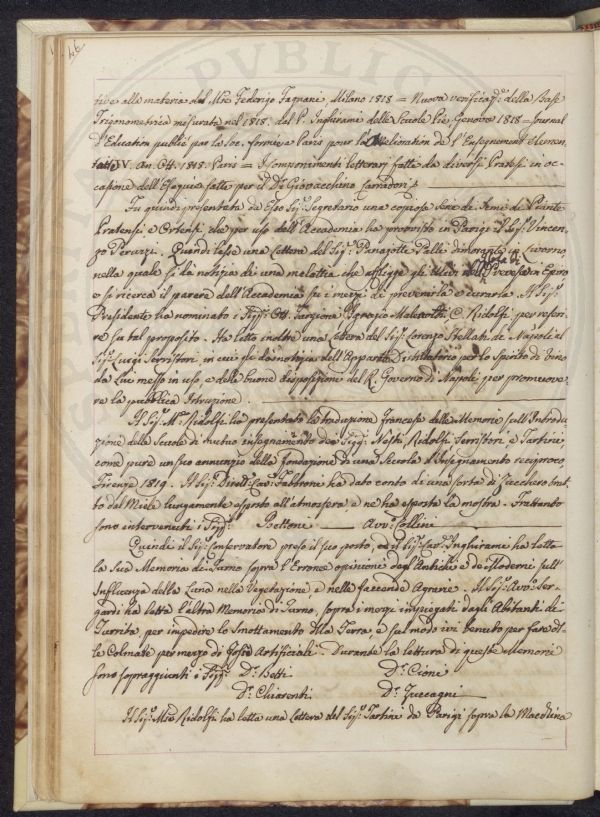 46
tive alla materia del Mse Federigo Fagnani Milano 1818 = Nuova verificaz.e della Base
Trigonometrica misurata nel 1818. dal P. Inghirami delle Scuole Pie Genova 1818 = Journal
d'Education publié par la Soc. formée a Paris pour l'Amelioration de l'Enseignement élémen-
taire IV. An. Ott. 1818. Paris = I Componimenti letterari fatti da diversi Pratesi in oc-
casione dell'Esequie fatte per il Dr Giovacchino Carradori
Fu quindi presentata da Esso Sig.r Segretario una copiosa Serie di Semi di Piante
Pratensi e Ortensi che per uso dell'Accademia ha provvisto in Parigi il Sig.r Vincen-
zo Peruzzi. Quindi lesse una Lettera del Sig.r Panajotte Palli dimorante in Livorno,
nella quale si dà notizia di una malattia che affligge gli Ulivi della Prevesa in Epiro
e si ricerca il parere dell'Accademia su i mezzi di prevenirla e curarla. Il Sig.r
Presidente ha nominato i Sigg.ri Ott. Targioni Ignazio Malenotti C. Ridolfi per referi-
re su tal proposito. Ha letto inoltre una Lettera del Sig.r Lorenzo Stellati di Napoli al
Sig.r Luigi Serristori in cui gli dà notizia dell'Apparato Distillatorio per lo Spirito di Vino
da Lui messo in uso e delle buone disposizioni del R. Governo di Napoli per promuove-
re la pubblica Istruzione.
Il Sig.r Mse Ridolfi ha presentato la traduzione francese della Memoria sull'Introdu-
zione delle Scuole di mutuo insegnamento dei Sigg.ri Nesti Ridolfi Serristori, e Tartini,
come pure un suo annunzio della fondazione di una Scuola d'Insegnamento reciproco,
Firenze 1819. Il Sig.r Dirett. Cav.r Fabbroni ha dato conto di una sorta di Zucchero trat-
to dal Miele lungamente esposto all'atmosfera e ne ha esposta la mostra. Frattanto
sono intervenuti i Sigg.ri Bettone Avv. Collini
Quindi il Sig.r Conservatore preso il suo posto, ed il Sig.r Cav.r Inghirami ha letta
la Sua Memoria di Turno sopra l'Erronee opinioni degl'Antichi e de' Moderni sull'
Influenza della Luna nella Vegetazione e nelle faccende Agrarie. Il Sig.r Avv.o Ser-
gardi ha letta l'altra Memoria di Turno, sopra i mezzi impiegati dagl'Abitanti di
Turrita, per impedire lo Smottamento della Terra, e sul modo ivi tenuto per fare del-
le Colmate per mezzo di Fosse Artificiali Durante la lettura di queste Memorie
sono sopraggiunti i Sigg.ri Dr Betti Dr Cioni
Dr Chiarenti Dr Zuccagni
Il Sig.r Mse Ridolfi ha letta una Lettera del Sig.r Tartini da Parigi sopra la Macchina